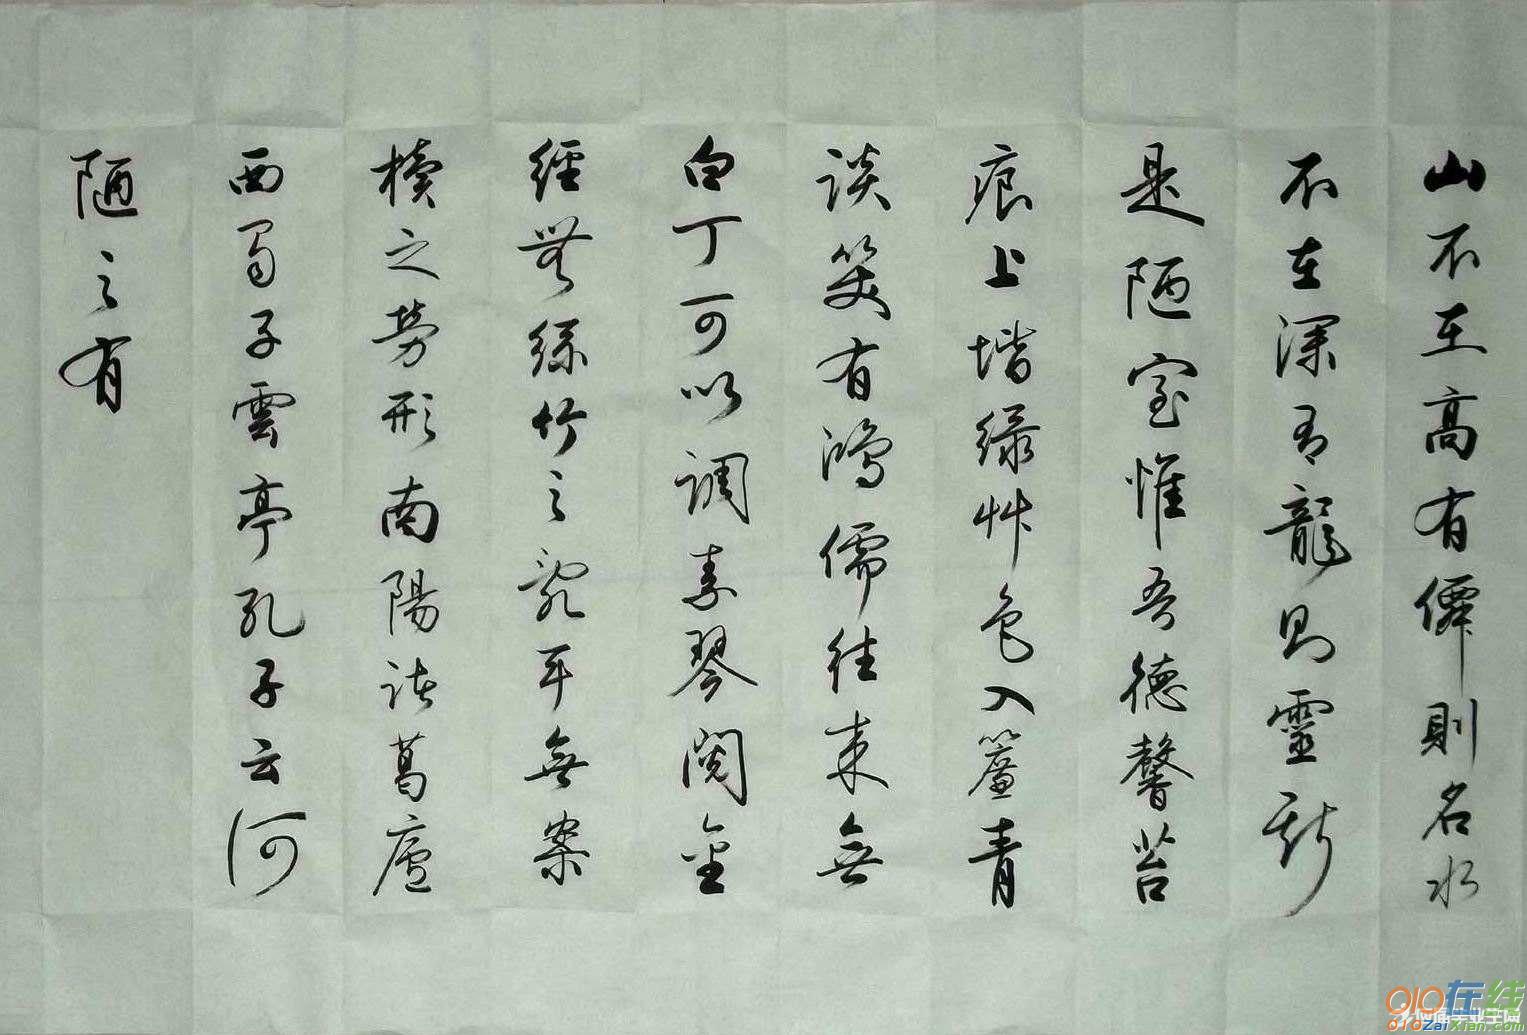 山不在高有僊則名水
不在深有龍則靈斯
是陋室惟吾德馨苔
痕上堦綠艸色入簾青
談笑有鴻儒往来無
白丁可以調素琴閱金
經無絲竹之亂耳無案
牘之勞形南陽諸葛廬
西蜀子雲亭孔子云何
陋之有
010在线
010ZaiXian.com